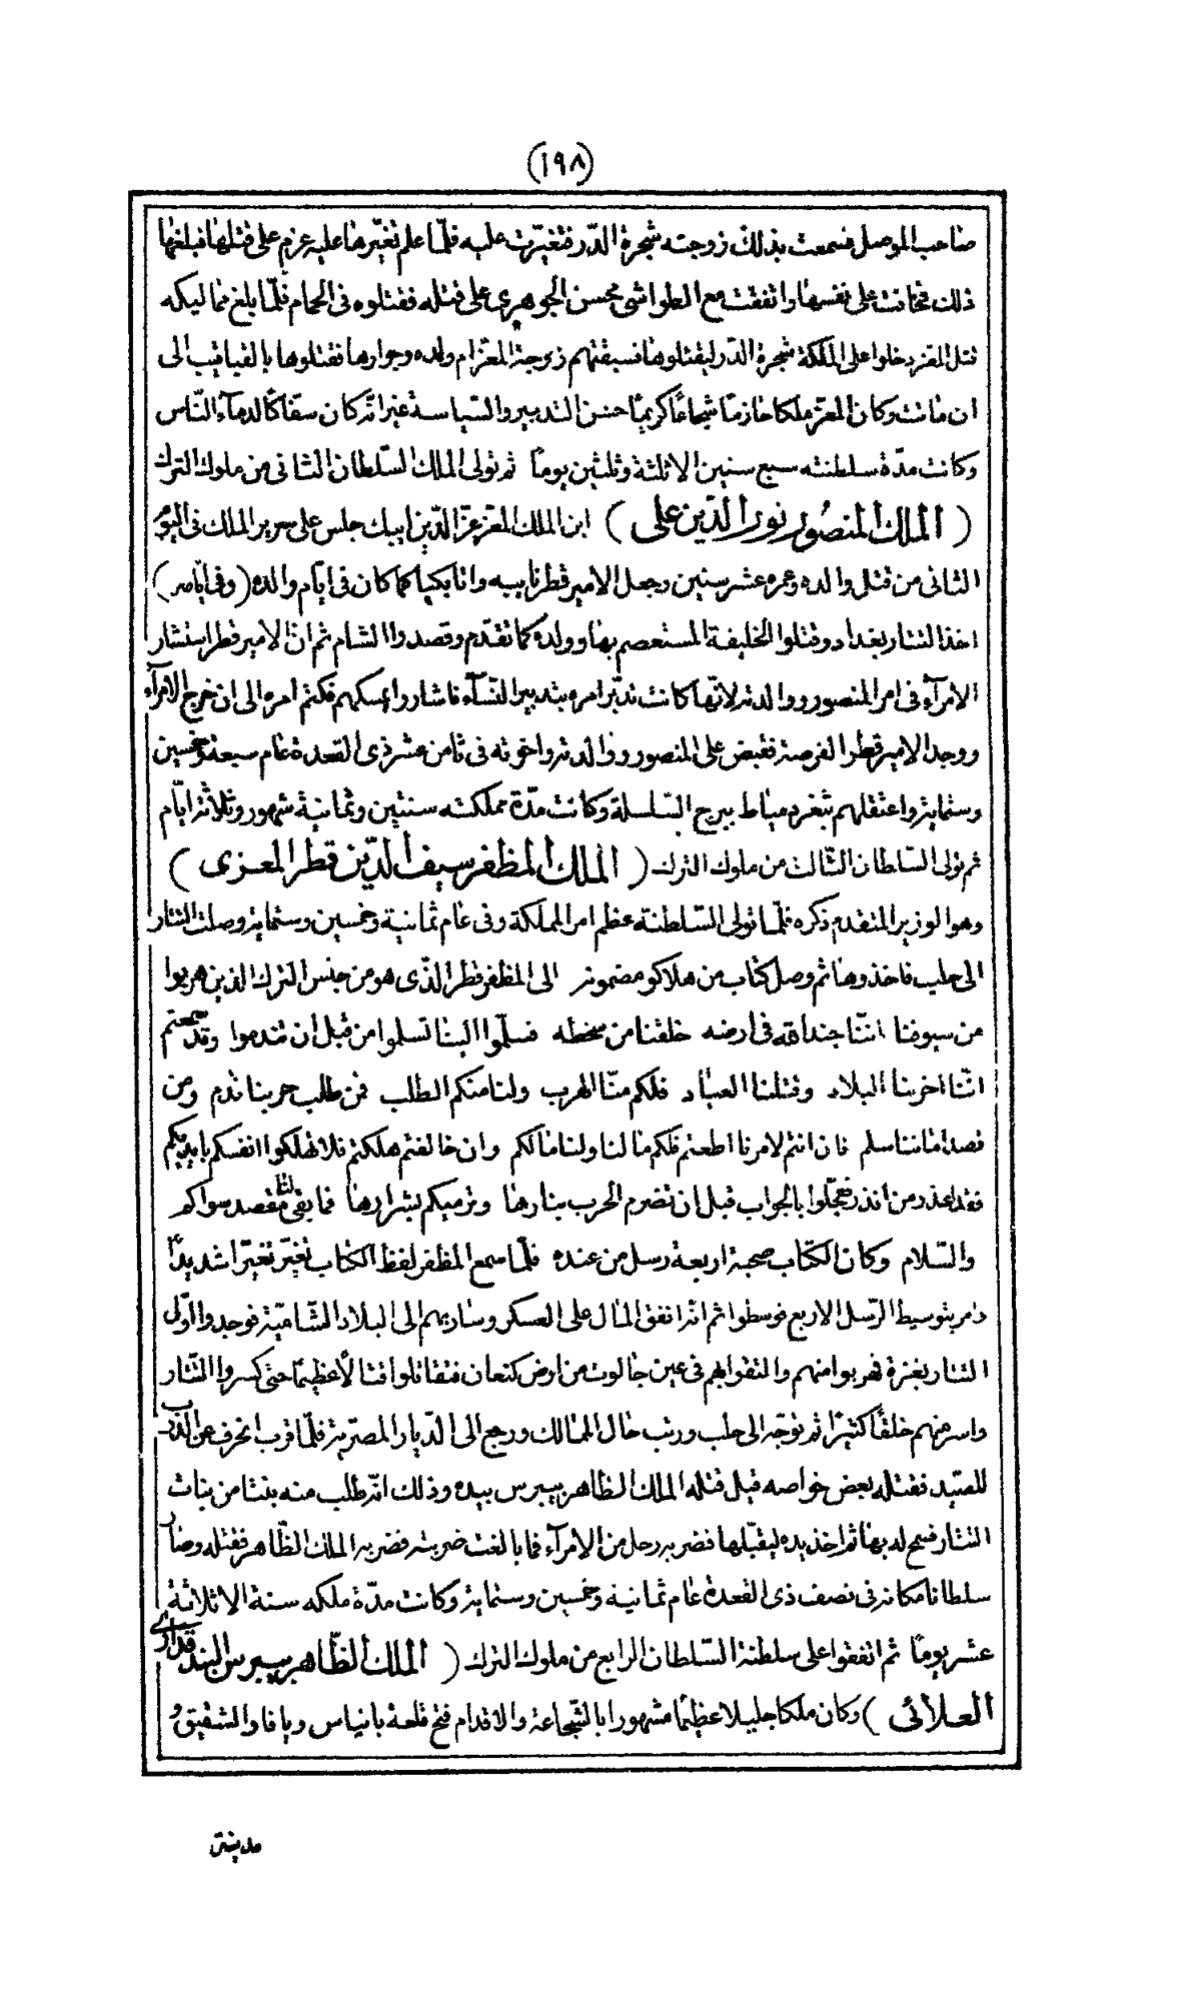 (١٩٨)
صاحب الموصل فسمعت بذلك زوجته شجرة الدّر فتغيّرت عليه فلمّا علم تغيّرها عليه عزم على قتلها فبلغها
ذلك فخافت على نفسها واتفقت مع الطواشى محسن الجوهرى على قتله فقتلوه فى الحمام فلمّا بلغ مماليكه
قتل المعز دخلوا على الملكة شجرة الدّر ليقتلوها فسبقتهم زوجة المعز ام ولده وجوارها فقتلوها بالقباقيب الى
ان ماتت وكان المعز ملكا حازمًا شجاعًا كريمًا حسن التدبير والسّياسة غير انّه كان سفّاكًا لدمآء النّاس
وكانت مدّة سلطنته سبع سنين الا ثلثة وثلثين يومًا ثم تولى الملك السّلطان الثانى من ملوك الترك
(الملك المنصور نور الدّين على) ابن الملك المعز عزّ الدّين ايبك جلس على سرير الملك فى اليوم
الثانى من قتل والده وعمره عشر سنين وجعل الامير قطز نايبه واتابكيا كما كان فى ايّام والده (وفى ايّامه)
اخذ التتار بغداد وقتلوا الخليفة المستعصم بها وولده كما تقدّم وقصدوا الشام ثم انّ الامير قطز استشار
الامرآء فى امر المنصور ووالدته لانّها كانت تدبّر امره بتدبير النّسآء فاشاروا بمسكهم فكتم امره الى ان خرج الامرآء
ووجد الامير قطز الفرصة فقبض على المنصور ووالدته واخوته فى ثامن عشر ذى القعدة عام سبعة وخمسين
وستماية واعتقلهم بثغر دمياط ببرج السّلسلة وكانت مدّة مملكته سنتين وثمانية شهور وثلاثة ايّام
ثم تولى السّلطان الثّالث من ملوك الترك (الملك المظفر سيف الدّين قطز المعزى)
وهو الوزير المتقدم ذكره فلمّا تولى السّلطنة عظم امر المملكة وفى عام ثمانية وخمسين وستماية وصلت التتار
الى حلب فاخذوها ثم وصل كتاب من هلاكو مضمونه الى المظفر قطز الذّى هو من جنس الترك الذين هربوا
من سيوفنا انّنا جند الله فى ارضه خلقنا من سخطه فسلّموا الينا تسلموا من قبل ان تندموا وقد سمعتم
انّنا اخربنا البلاد وقتلنا العباد فلكم منّا الهرب ولنا منكم الطلب فمن طلب حربنا ندم ومن
قصد اماننا سلم فان انتم لامرنا اطعتم فلكم مالنا ولنا مالكم وان خالفتم هلكتم فلا تهلكوا انفسكم بايديكم
فقد اعذر من انذر فعجّلوا بالجواب قبل ان تضرم الحرب بنارها وترميكم بشرارها فما بقى لنا مقصد سواكم
والسّلام وكان الكتاب صحبة اربعة رسل من عنده فلمّا سمع المظفر لفظ الكتاب تغيّر تغيّرا شديدًا
وامر بتوسيط الرّسل الاربع فوسطوا ثم انّه انفق المال على العسكر وسار بهم الى البلاد الشّاميّة فوجدوا اوّلى
التتار بغزة فهربوا منهم والتقوا بهم فى عين جالوت من ارض كنعان فتقاتلوا قتالًا عظيمًا حتى كسروا التّتار
واسر منهم خلقًا كثيرًا ثم توجّه الى حلب ورتب حال الممالك ورجع الى الدّيار المصريّة فلمّا قرب انحرف عن الدّرب
للصّيد فقتله بعض خواصه قيل قتله الملك الظاهر بيبرس بيده وذلك انّه طلب منه بنتا من بنات
التتار فسمح له بها ثم اخذ يده ليقبّلها فضربه رجل من الامرآء فما بالغت ضربته فضربه الملك الظّاهر فقتله وصار
سلطانا مكانه فى نصف ذى القعدة عام ثمانية وخمسين وستماية وكانت مدّة ملكه سنة الا ثلاثة
عشر يومًا ثم اتفقوا على سلطنة السّلطان الرابع من ملوك الترك (الملك الظّاهر بيبرس البندقدارى
العلائى) وكان ملكا جليلا عظيمًا مشهورا بالشّجاعة والاقدام فتح قلعة بانياس ويافا والشقيق و
مدينتى